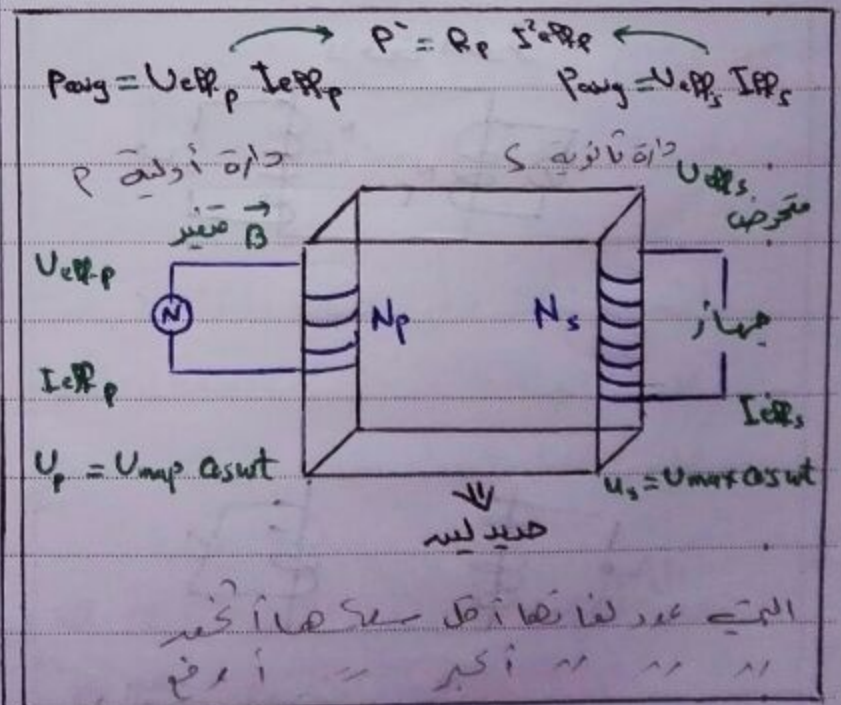 P` = Rp I²effp
Pavg = Ueffp Ieffp
Pavg = Ueffs Iffs
دارة أولية P
دارة ثانوية S
Ueffs
متحرض
B متغير
Ueffp
N
Np
Ns
جهاز
Ieffp
Ieffs
Up = Umax cos wt
us = Umax cos wt
حديد لين
التي عدد لفاتها أقل سماكتها أكبر
〃 〃 〃 أكبر 〃 أرفع